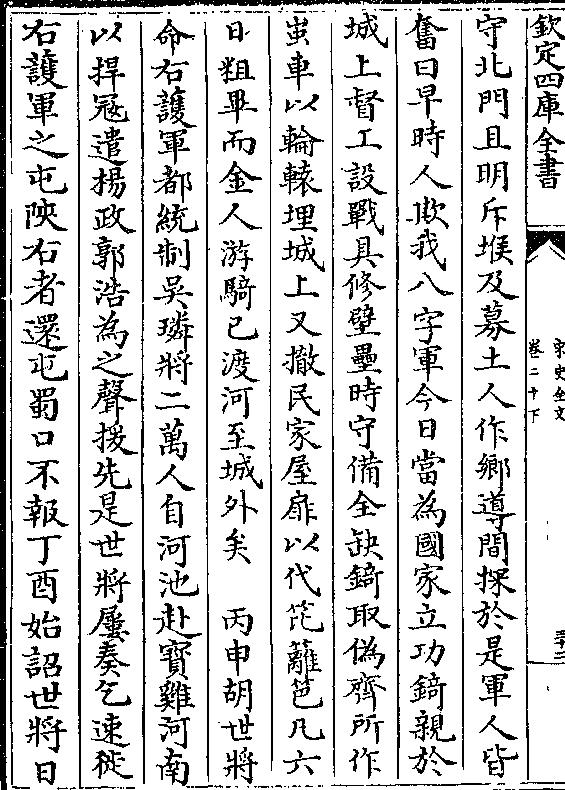 欽定四庫全書
宋史全文
卷二十下
守北門且明斥堠及募土人作鄉導間探於是軍人皆
奮曰早時人欺我八字軍今日當為國家立功錡親於
城上督工設戰具修壁壘時守備全缺錡取偽齊所作
蚩車以輪轅埋城上又撤民家屋扉以代笓籬笆凡六
日粗畢而金人游騎已渡河至城外矣　丙申胡世將
命右護軍都統制吳璘將二萬人自河池赴寶雞河南
以捍冦遣楊政郭浩為之聲援先是世將屢奏乞速徙
右護軍之屯陜右者還屯蜀口不報丁酉始詔世將日